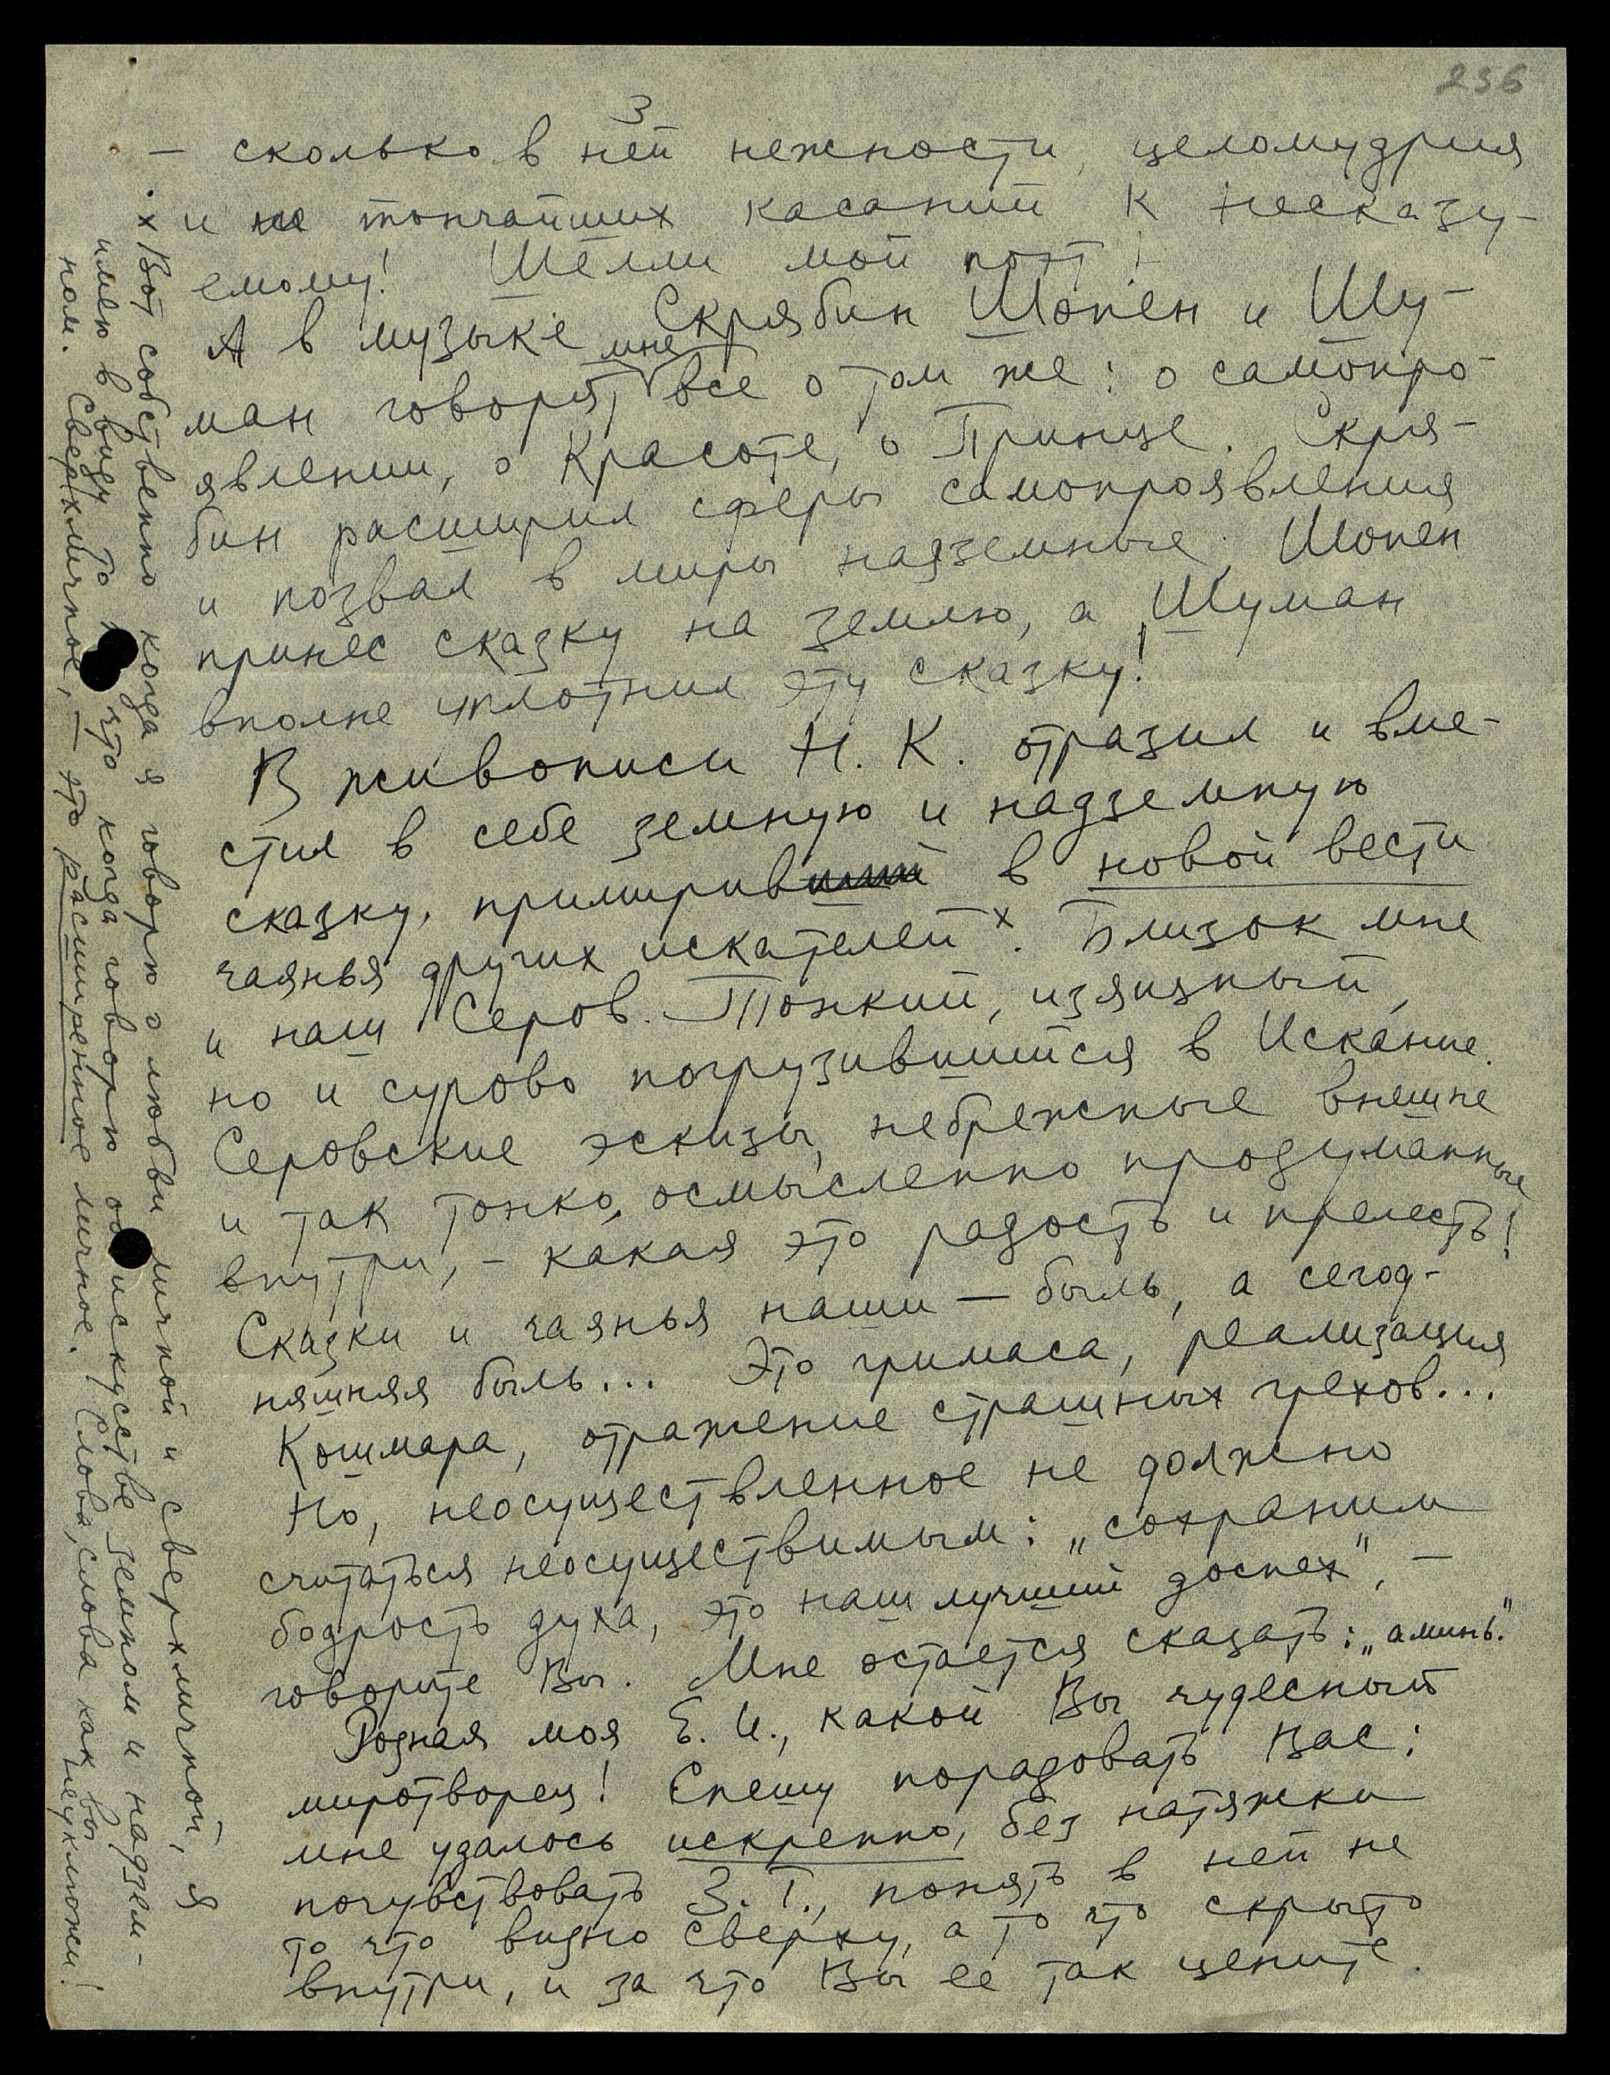 236
3
— сколько в ней нежности, целомудрия
и тончайших касаний к Несказу-
емому! Шелли мой поэт!
А в музыке Скрябин Шопен и Шу-
ман говорят мне все о том же: о самопро-
явлении, о Красоте, о Принце. Скря-
бин расширил сферы самопроявления
и позвал в миры надземные, Шопен
принес сказку на землю, а Шуман
вполне уплотнил эту сказку!
В живописи Н. К. отразил и вме-
стил в себе земную и надземную
сказку, примирив в новой вести
чаянья других искателей х. Близок мне
и наш Серов. Тонкий, изящный,
но и сурово погрузившийся в Искание.
Серовские эскизы, небрежные внешне
и так тонко, осмысленно продуманные
внутри, – какая это радость и прелесть!
Сказки и чаянья наши — быль, а сегод-
няшняя быль... Это гримаса, реализация
Кошмара, отражение страшных грехов...
Но, неосуществленное не должно
считаться неосуществимым: „сохраним
бодрость духа, это наш лучший доспех", —
говорите Вы. Мне остается сказать: „аминь."
Родная моя Е. И., какой Вы чудесный
миротворец! Спешу порадовать Вас:
мне удалось искренно, без натяжки
почувствовать З. Г., понять в ней не
то что видно сверху, а то что скрыто
внутри, и за что Вы ее так цените.
х Вот собственно когда я говорю о любви личной и сверхличной, я
имею в виду то что когда говорю об искусстве земном и надзем-
ном. Сверхличное, — это расширенное личное. Слова, слова как вы
неуклюжи!